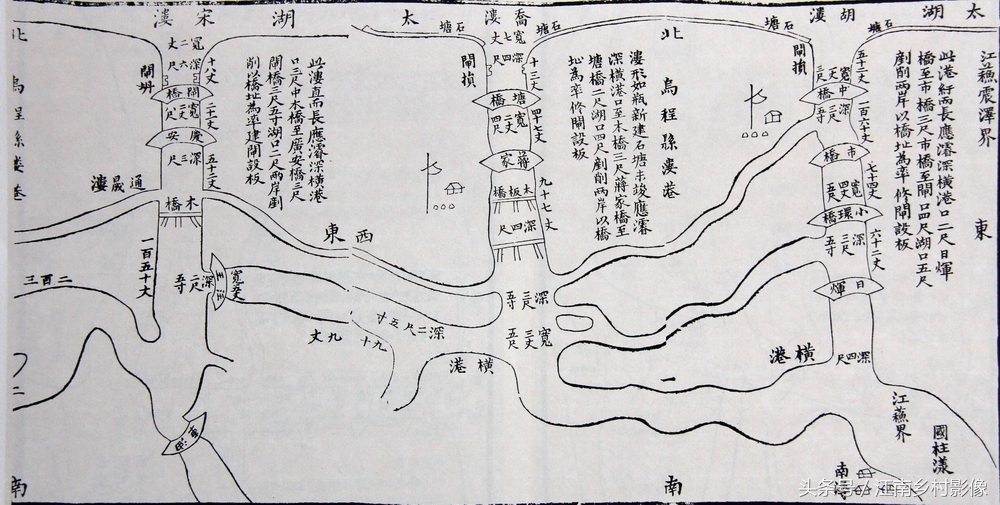 太湖
胡漊
石塘
石塘
江蘇震澤界
東
此港紆而長應濬深橫港口二尺日煇
橋至市橋三尺市橋至閘口四尺湖口五尺
劃削兩岸以橋址為率修閘設板
五十二丈
閘損
中橋
深三尺五寸
一百六十丈
市橋
七十四丈
寬四丈五尺
小環橋
深三尺五寸
六十二丈
日煇
深四尺
橫港
江蘇界
國柱漾
北
烏程縣漊港
漊形如瓶新建石塘未竣應濬
深橫港口至木橋三尺蔣家橋至
塘橋二尺湖口四尺劃削兩岸以橋
址為率修閘設板
喬漊
石塘
石塘
寬七丈
深四尺
十三丈
閘損
塘橋
寬二丈四尺
四十七丈
蔣家
木板橋
九十七丈
深四尺
深三尺五寸
寬三丈五尺
橫港
南
太湖
宋漊
此漊直而長應濬深橫港
口三尺中木橋至廣安橋三尺
閘橋三尺五寸湖口二尺兩岸劃
削以橋址為率建閘設板
寬二丈
深六尺
十八丈
閘坍
閘橋
二十二丈
寬二丈八尺
慶安
深三尺
五十二丈
通晟漊
木橋
西東
一百五十丈
深二尺五寸
寬五丈
深二尺五寸
九十九丈
二百三
北
烏程縣漊港
南
头条号 / 江南乡村影像